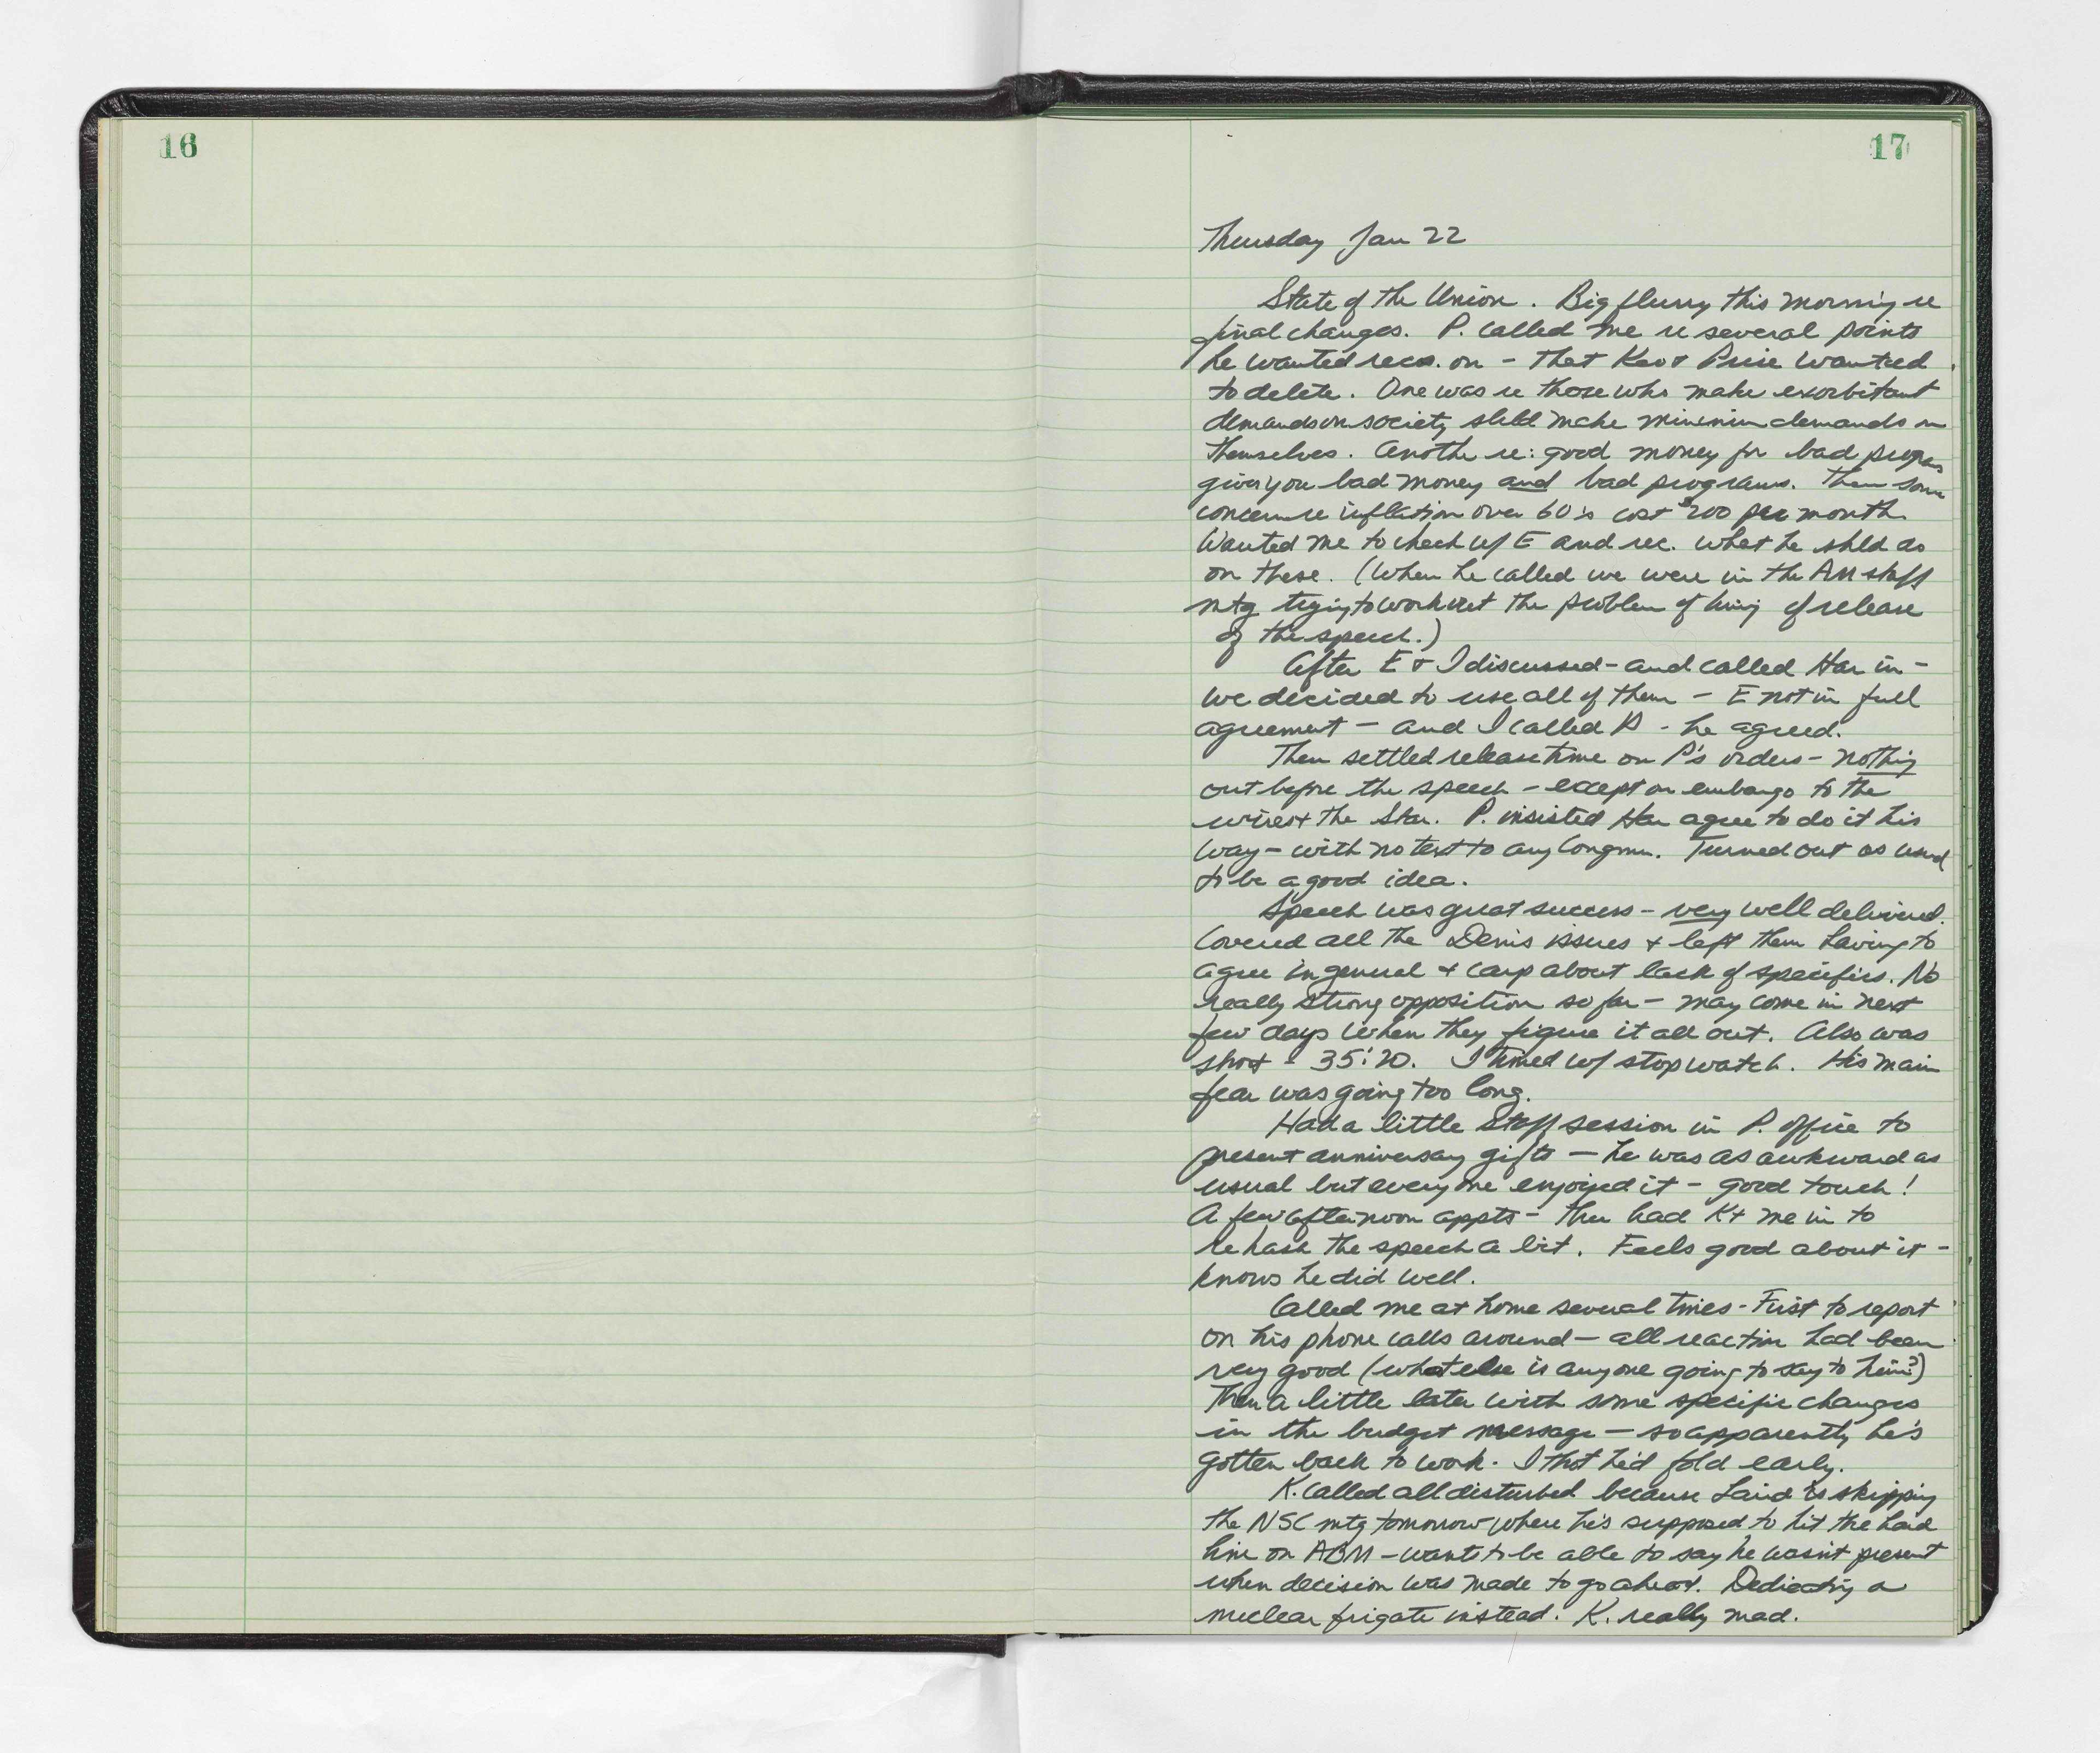 16
17
Thursday Jan 22
State of the Union. Big flurry this morning re
final changes. P. called me re several points
he wanted recs. on - that Keo & Price wanted
to delete. One was re those who make exorbitant
demands on society shld make minimum demands on
themselves. Another re: good money for bad programs
gives you bad money and bad programs. Then some
concern re inflation over 60's cost $200 per month
Wanted me to check w/ E and rec. what he shld do
on these. (When he called we were in the AM staff
mtg trying to work out the problem of timing of release
of the speech.)
After E & I discussed - and called Har in -
we decided to use all of them - E not in full
agreement - and I called P - he agreed.
Then settled release time on P's orders - nothing
out before the speech - except on embargo to the
wires & the Star. P. insisted Har agree to do it his
way - with no text to any Congmn. Turned out as usual
to be a good idea.
Speech was great success - very well delivered.
Covered all the Dem's issues & left them having to
agree in general & carp about lack of specifics. No
really strong opposition so far - may come in next
few days when they figure it all out. Also was
short - 35:20. I timed w/ stopwatch. His main
fear was going too long.
Had a little staff session in P. office to
present anniversary gifts - he was as awkward as
usual but everyone enjoyed it - good touch!
A few afternoon appts - then had K & me in to
rehash the speech a bit. Feels good about it -
knows he did well.
Called me at home several times - First to report
on his phone calls around - all reaction had been
very good (what else is anyone going to say to him?)
Then a little later with some specific changes
in the budget message - so apparently he's
gotten back to work. I thot he'd fold early.
K. called all disturbed because Laird is skipping
the NSC mtg tomorrow where he's supposed to hit the hard
line on ABM - wants to be able to say he wasn't present
when decision was made to go ahead. Dedicating a
nuclear frigate instead. K. really mad.